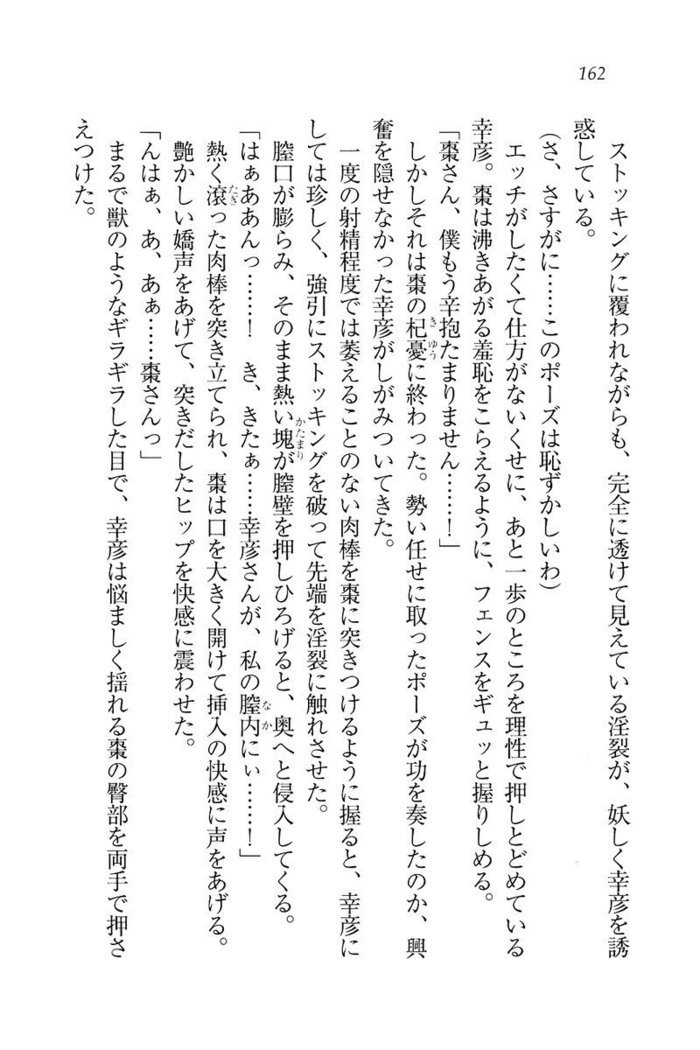 162
ストッキングに覆われながらも、完全に透けて見えている淫裂が、妖しく幸彦を誘
惑している。
（さ、さすがに……このポーズは恥ずかしいわ）
エッチがしたくて仕方がないくせに、あと一歩のところを理性で押しとどめている
幸彦。棗は沸きあがる羞恥をこらえるように、フェンスをギュッと握りしめる。
「棗さん、僕もう辛抱たまりません……！」
しかしそれは棗の杞憂に終わった。勢い任せに取ったポーズが功を奏したのか、興
奮を隠せなかった幸彦がしがみついてきた。
一度の射精程度では萎えることのない肉棒を棗に突きつけるように握ると、幸彦に
しては珍しく、強引にストッキングを破って先端を淫裂に触れさせた。
膣口が膨らみ、そのまま熱い塊が膣壁を押しひろげると、奥へと侵入してくる。
「はぁああんっ……！　き、きたぁ……幸彦さんが、私の膣内にぃ……！」
熱く滾った肉棒を突き立てられ、棗は口を大きく開けて挿入の快感に声をあげる。
艶かしい嬌声をあげて、突きだしたヒップを快感に震わせた。
「んはぁ、あ、あぁ……棗さんっ」
まるで獣のようなギラギラした目で、幸彦は悩ましく揺れる棗の臀部を両手で押さ
えつけた。